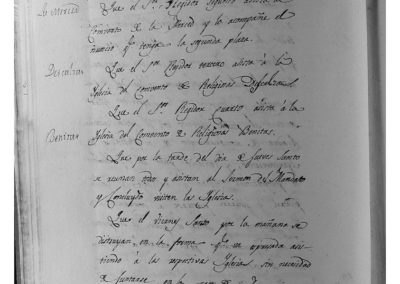 Que el Sor. Regidor segundo asista al
La Merced
Convento de la Merced y lo acompañe el
qe. tenga la segunda plata.
Descalzas
Que el Sor. Regidor tercero asista à la
Iglesia del convento de Religiosas Descalzas.
Que el Sor. Regidor quarto asista à la
Benitas
Iglesia del Convento de Religiosas Benitas.
Que por la tarde del dia de Jueves Santo
se reunan todo y asistan al Sermon del Mandato
y Concluydo visiten las Iglesias.
Que el Viernes Santo por la mañana se
distruyan en la forma qe. va expresada asis-
tiendo à las respectivas Iglesias, sin necesidad
de juntarse en la